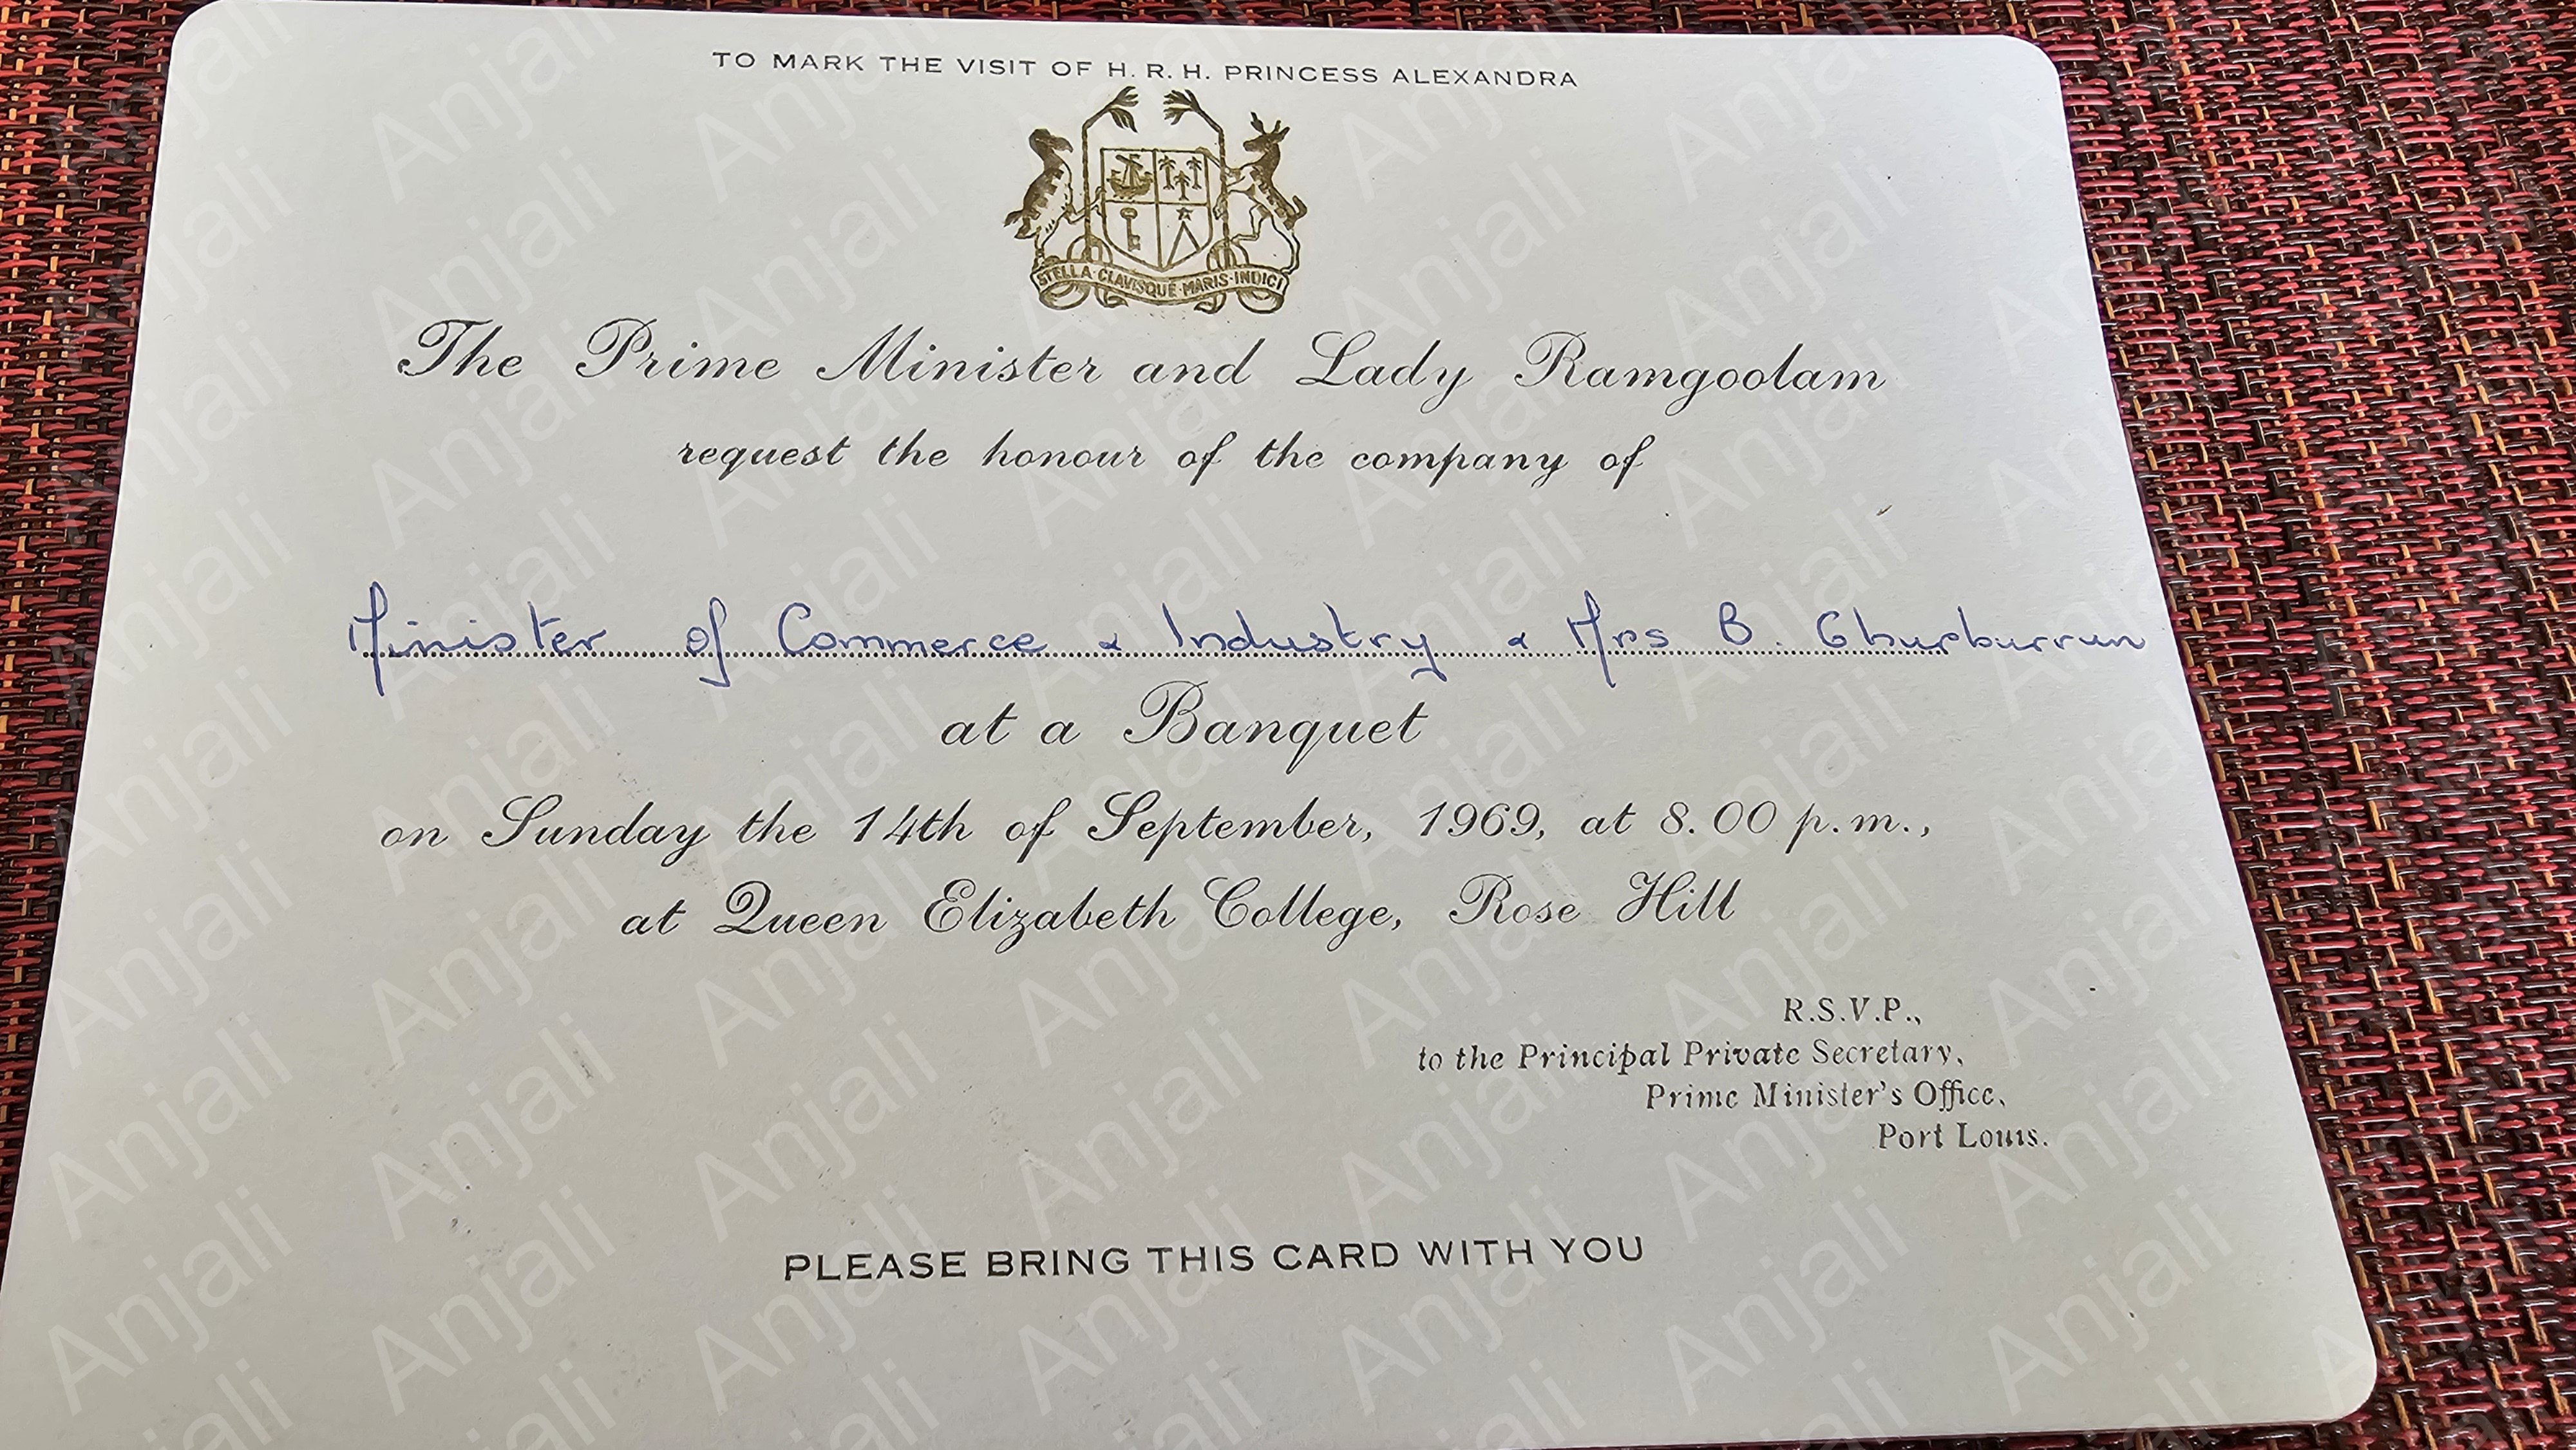 TO MARK THE VISIT OF H. R. H. PRINCESS ALEXANDRA
STELLA CLAVISQUE MARIS INDICI
The Prime Minister and Lady Ramgoolam
request the honour of the company of
Minister of Commerce & Industry & Mrs B. Ghurburrun
at a Banquet
on Sunday the 14th of September, 1969, at 8.00 p.m.,
at Queen Elizabeth College, Rose Hill
R.S.V.P.,
to the Principal Private Secretary,
Prime Minister's Office,
Port Louis.
PLEASE BRING THIS CARD WITH YOU
Anjali